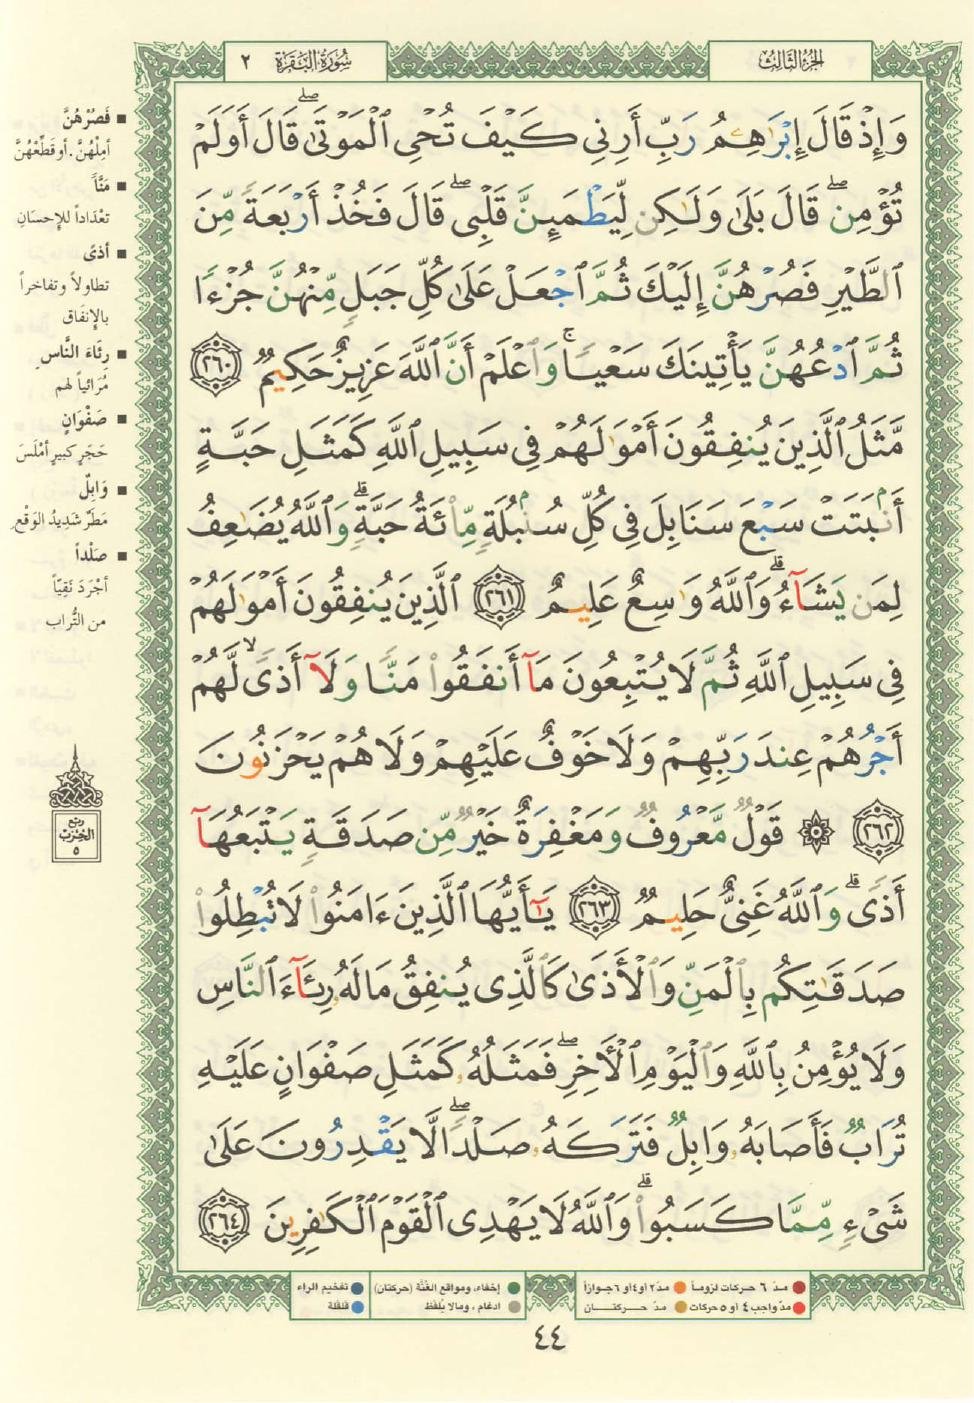 الجزء الثالث
سُورَةُ البَقَرَة ٢
وَإِذْ قَالَ إِبْرَٰهِـۧمُ رَبِّ أَرِنِى كَيْفَ تُحْىِ ٱلْمَوْتَىٰ ۖ قَالَ أَوَلَمْ
تُؤْمِن ۖ قَالَ بَلَىٰ وَلَـٰكِن لِّيَطْمَئِنَّ قَلْبِى ۖ قَالَ فَخُذْ أَرْبَعَةً مِّنَ
ٱلطَّيْرِ فَصُرْهُنَّ إِلَيْكَ ثُمَّ ٱجْعَلْ عَلَىٰ كُلِّ جَبَلٍ مِّنْهُنَّ جُزْءًا
ثُمَّ ٱدْعُهُنَّ يَأْتِينَكَ سَعْيًا ۚ وَٱعْلَمْ أَنَّ ٱللَّهَ عَزِيزٌ حَكِيمٌ ٢٦٠
مَّثَلُ ٱلَّذِينَ يُنفِقُونَ أَمْوَٰلَهُمْ فِى سَبِيلِ ٱللَّهِ كَمَثَلِ حَبَّةٍ
أَنۢبَتَتْ سَبْعَ سَنَابِلَ فِى كُلِّ سُنۢبُلَةٍ مِّا۟ئَةُ حَبَّةٍ ۗ وَٱللَّهُ يُضَـٰعِفُ
لِمَن يَشَآءُ ۗ وَٱللَّهُ وَٰسِعٌ عَلِيمٌ ٢٦١ ٱلَّذِينَ يُنفِقُونَ أَمْوَٰلَهُمْ
فِى سَبِيلِ ٱللَّهِ ثُمَّ لَا يُتْبِعُونَ مَآ أَنفَقُوا۟ مَنًّا وَلَآ أَذًى ۙ لَّهُمْ
أَجْرُهُمْ عِندَ رَبِّهِمْ وَلَا خَوْفٌ عَلَيْهِمْ وَلَا هُمْ يَحْزَنُونَ
٢٦٢ ۞ قَوْلٌ مَّعْرُوفٌ وَمَغْفِرَةٌ خَيْرٌ مِّن صَدَقَةٍ يَتْبَعُهَآ
أَذًى ۗ وَٱللَّهُ غَنِىٌّ حَلِيمٌ ٢٦٣ يَـٰٓأَيُّهَا ٱلَّذِينَ ءَامَنُوا۟ لَا تُبْطِلُوا۟
صَدَقَـٰتِكُم بِٱلْمَنِّ وَٱلْأَذَىٰ كَٱلَّذِى يُنفِقُ مَالَهُۥ رِئَآءَ ٱلنَّاسِ
وَلَا يُؤْمِنُ بِٱللَّهِ وَٱلْيَوْمِ ٱلْـَٔاخِرِ ۖ فَمَثَلُهُۥ كَمَثَلِ صَفْوَانٍ عَلَيْهِ
تُرَابٌ فَأَصَابَهُۥ وَابِلٌ فَتَرَكَهُۥ صَلْدًا ۖ لَّا يَقْدِرُونَ عَلَىٰ
شَىْءٍ مِّمَّا كَسَبُوا۟ ۗ وَٱللَّهُ لَا يَهْدِى ٱلْقَوْمَ ٱلْكَـٰفِرِينَ ٢٦٤
■ فَصُرْهُنَّ
أمِلْهُنَّ . أو قَطِّعْهُنَّ
■ مَنّاً
تعْدَاداً للإحسَانِ
■ أذىً
تطاولاً وتفاخراً
بالإنفاق
■ رِئَاءَ النَّاسِ
مُرَائياً لهم
■ صَفْوَانٍ
حَجَرٍ كبيرٍ أمْلَسَ
■ وَابِلٌ
مَطَرٌ شَدِيدُ الوَقْعِ
■ صَلْداً
أجْرَدَ نَقِيّاً
من التُّراب
ربع
الحزب
٥
مدّ ٦ حركات لزوماً
مدّ ٢ أو ٤ أو ٦ جوازاً
مدّ واجب ٤ أو ٥ حركات
مدّ حركتان
إخفاء، ومواقع الغُنَّة (حركتان)
تفخيم الراء
ادغام ، ومالا يُلفظ
قلقلة
٤٤